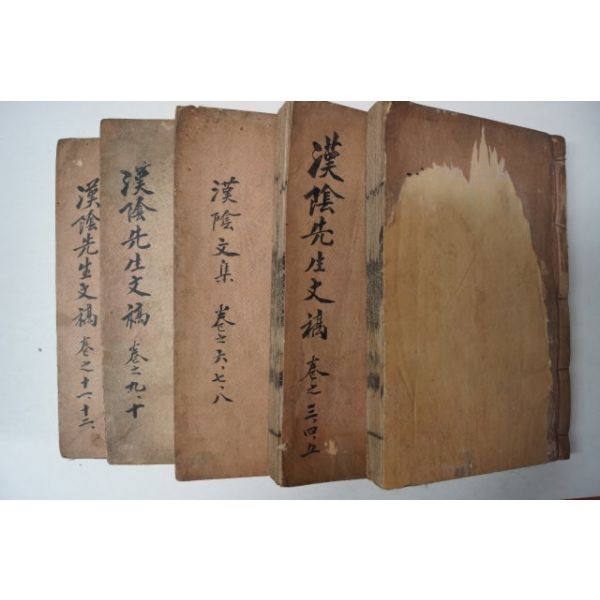 漢陰先生文稿 卷之三、四、五
漢陰文集 卷之六、七、八
漢陰先生文稿 卷之九、十
漢陰先生文稿 卷之十一、十二